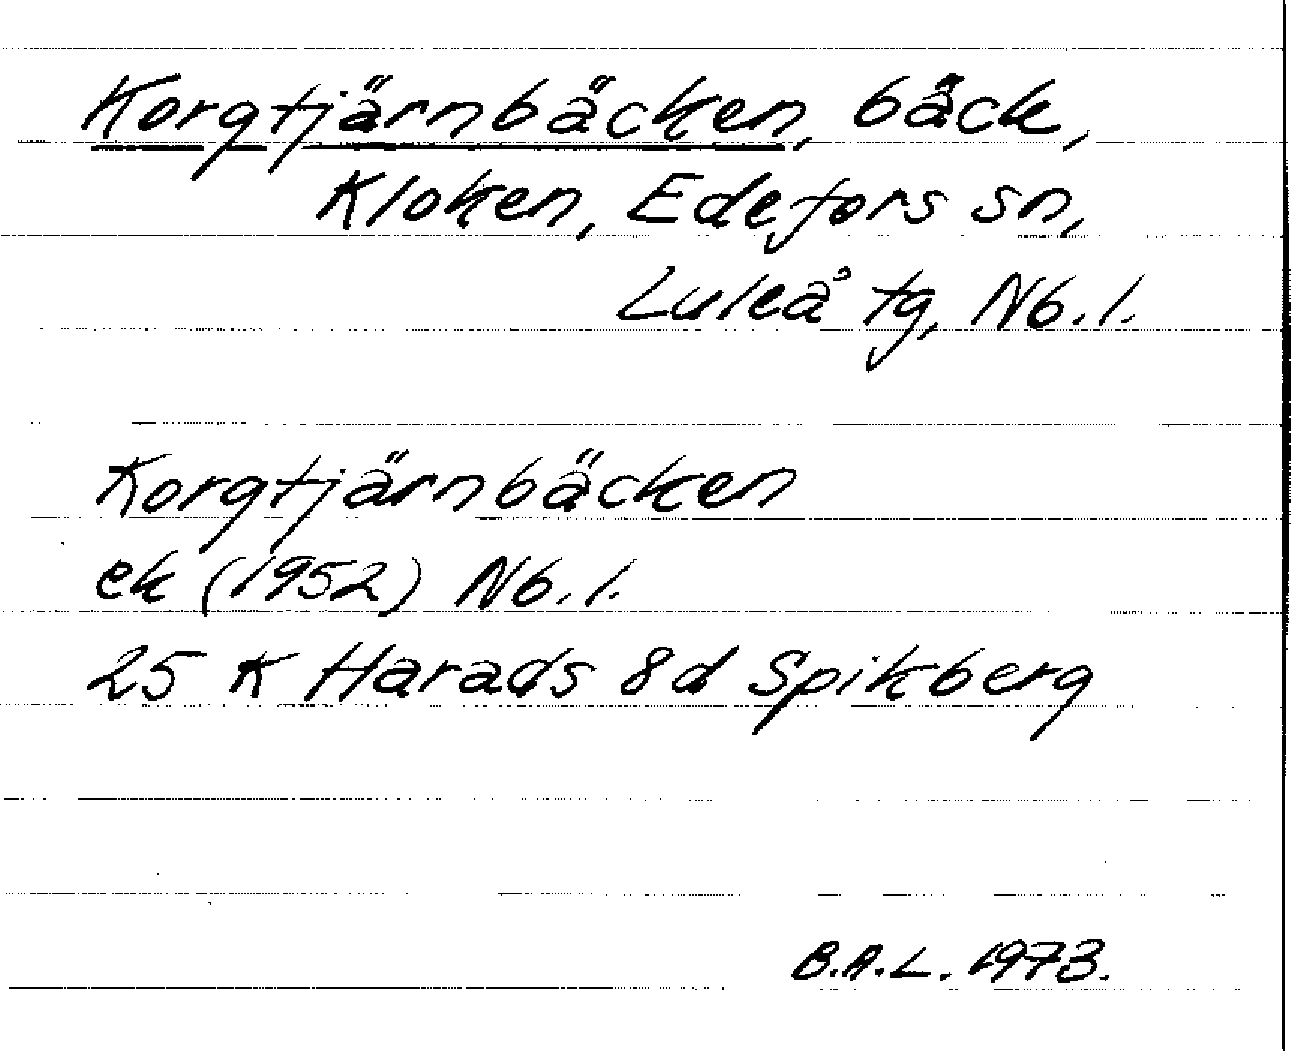 Korgtjärnbäcken, bäck,
Kloken, Edefors sn,
Luleå tg, Nb. l.
Korgtjärnbäcken
ek (1952) Nb. l.
25 K Harads 8d Spikberg
B.A.L. 1973.